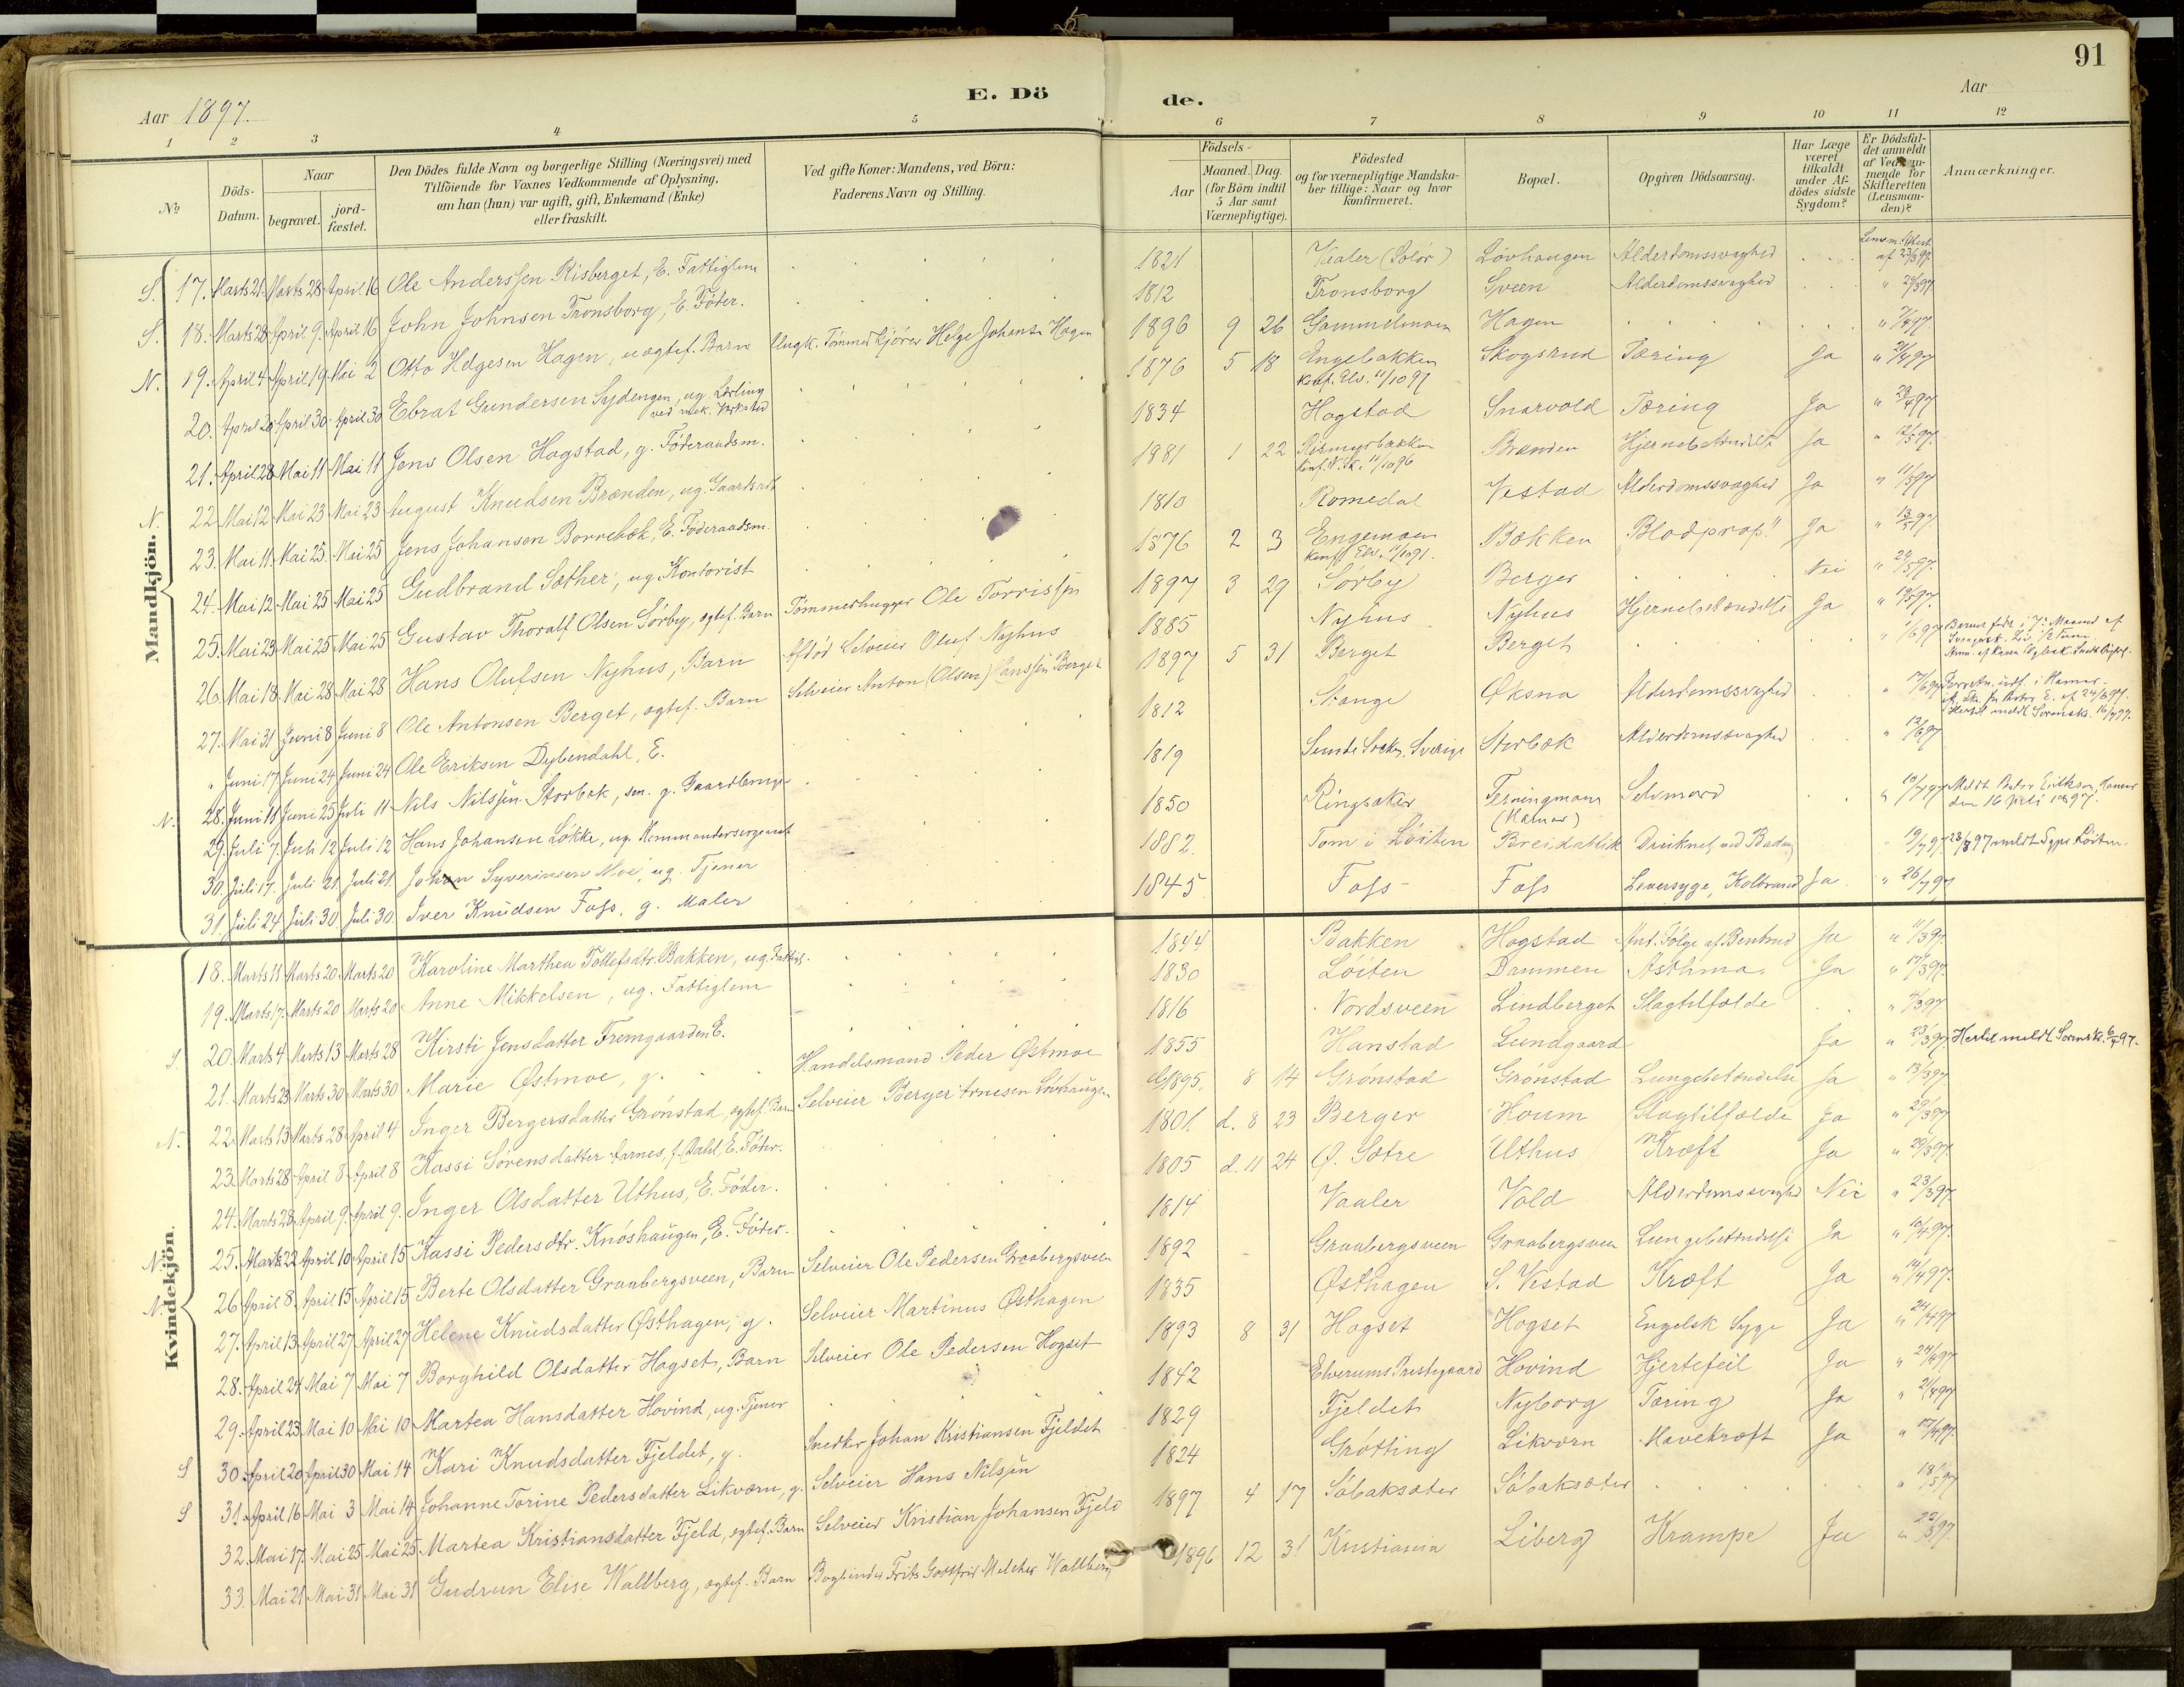 91
Aar 1897.
E. Dö de.
Aar
1 2 3 4 5 6 7 8 9 10 11 12
No
Döds-Datum.
Naar
begravet.
jord-fæstet.
Den Dödes fulde Navn og borgerlige Stilling (Næringsvei) med
Tilföiende for Voxnes Vedkommende af Oplysning,
om han (hun) var ugift, gift, Enkemand (Enke)
eller fraskilt.
Ved gifte Koner: Mandens, ved Börn:
Faderens Navn og Stilling.
Födsels-
Aar
Maaned. Dag.
(for Börn indtil
5 Aar samt
Værnepligtige).
Födested
og for værnepligtige Mandska-
ber tillige: Naar og hvor
konfirmeret.
Bopæl.
Opgiven Dödsaarsag.
Har Læge
været
tilkaldt
under Af-
dödes sidste
Sygdom?
Er Dödsfal-
det anmeldt
af Vedkom-
mende for
Skifteretten
(Lensman-
den)?
Anmærkninger.
Mandkjön.
S. 17. Marts 21. Marts 28 April 16 Ole Anderssen Risberget, E. Fattiglem 1821 Vaaler (Solör) Lövhaugen Alderdomssvaghed Lensm. Attest af 23/3 97.
S. 18. Marts 28 April 9. April 16 John Johnsen Tronsborg, E. Föder. 1812 Tronsborg Sveen Alderdomssvaghed " 29/3 97
N. 19. April 4 April 19. Mai 2 Otto Helgesen Hagen, uægtef. Barn Ungk. Tömmerkjörer Helge Johansen Hagen 1896 9 26 Gammelmoen Hagen " 7/4 97.
20. April 20 April 30. April 30 Ebrat Gundersen Sydengen, ug. Lærling ved mek. Værksted 1876 5 18 Engebakken Konf. Elv. 11/10 91 Skogsrud Tæring Ja " 21/4 97
21. April 28 Mai 11 Mai 11 Jens Olsen Hagstad, g. Föderaadsm. 1834 Hogstad Snarvold Tæring Ja " 29/4 97
N. 22 Mai 12 Mai 23 Mai 23 August Knudsen Brænden, ug. Gaardsarb. 1881 1 22 Rismyrbakken Konf. N. K. 11/10 96 Brænden Hjernebetændelse Ja " 12/5 97.
23. Mai 11. Mai 25. Mai 25 Jens Johansen Borrebæk, E. Föderaadsm. 1810 Romedal Vestad Alderdomssvaghed Ja " 11/5 97
24. Mai 12 Mai 25 Mai 25 Gudbrand Sæther, ug. Kontorist 1876 2 3 Engemoen Konf. Elv. 11/10 91. Bækken "Blodprop." Ja " 13/5 97.
25. Mai 23 Mai 25 Mai 25 Gustav Thoralf Olsen Sörby, ægtef. Barn Tömmerhugger Ole Torrissen 1897 3 29 Sörby Berger Nei " 24/5 97.
26 Mai 18. Mai 28 Mai 28 Hans Olufsen Nyhus, Barn Afdöd Selveier Oluf Nyhus 1885 Nyhus Nyhus Hjernebetændelse Ja " 19/5 97.
27. Mai 31 Juni 8 Juni 8 Ole Antonsen Berget, ægtef. Barn Selveier Anton (Olsen) Hanssen Berget 1897 5 31 Berget Berget " 1/6 97 Barnet födt i 7. Maaned af
" Juni 17 Juni 24 Juni 24 Ole Eriksen Dybendahl, E. 1812 Stange Øksna Alderdomssvaghed " 17/6 97
N. 28. Juni 11 Juni 25 Juli 11 Nils Nilssen Storbæk, sen. g. Gaardbruger 1819 Sunde Socken, Sverige Storbæk Alderdomssvaghed " 12/6 97
29. Juli 7. Juli 12 Juli 12 Hans Johansen Lökke, ug. Kommandersergeant 1850 Ringsaker Terningmoen (Hamar) Selvmord " 10/7 97 Meldt Pastor Erikson, Hamar den 16 Juli 1897.
30. Juli 17. Juli 21. Juli 21. Johan Syverinsen Moe, ug. Tjener 1882. Tom i Löiten Breidablik Druknet ved Badning 19/7 97. 23/8 97 meldt Sgpr. Löiten.
31. Juli 24 Juli 30. Juli 30. Iver Knudsen Foss, g. Maler 1845 Foss Foss Leversyge, Koldbrand Ja " 26/7 97
Kvindekjön.
18. Marts 11 Marts 20. Marts 20 Karoline Marthea Tollefsdtr. Bakken, ug. Fattigl. 1844 Bakken Hogstad Ant. Fölge af Benbrud Ja " 11/3 97.
19. Marts 17. Marts 20 Marts 20 Anne Mikkelsen, ug. Fattiglem 1830 Löiten Dammen Asthma. Ja " 17/3 97.
S. 20. Marts 4 Marts 13 Marts 28 Kirsti Jensdatter Fremgaarden E. 1816 Nordsveen Lindberget Slagtilfælde " 5/3 97.
21. Marts 23 Marts 30 Marts 30 Marie Østmoe, g. Handelsmand Peder Østmoe 1855 Hanstad Lundgaard Ja " 23/3 97. Hertil meldt Sorensk. 6/4 97.
N. 22 Marts 13 Marts 28 April 4 Inger Bergersdatter Grönstad, ægtef. Barn Selveier Berger Arnesen Lövhaugen 1895. 8 14 Grönstad Grönstad Lungebetændelse Ja " 13/3 97.
23. Marts 28 April 8 April 8 Kassi Sörensdatter Aarnes, f. Dahl, E. Föder. 1801 d. 8 23 Berger Houm Slagtilfælde Ja " 29/3 97
24. Marts 28 April 9. April 9. Inger Olsdatter Uthus, E. Föder. 1805 d. 11 24 Ø. Sætre Uthus Kræft Ja " 29/3 97.
N. 25. Marts 22 April 10 April 15 Kassi Pedersdtr. Knöshaugen, E. Föder. 1814 Vaaler Vold Alderdomssvaghed Nei " 23/3 97.
N. 26 April 8. April 15 April 15 Berte Olsdatter Graabergsveen, Barn Selveier Ole Pedersen Graabergsveen 1892 Graabergsveen Graabergsveen Lungebetændelse Ja " 10/4 97.
27. April 13 April 27 April 27 Helene Knudsdatter Østhagen, g. Selveier Martinus Østhagen 1835 Østhagen S. Vestad Kræft Ja " 14/4 97.
28. April 24 Mai 7 Mai 7 Borghild Olsdatter Hagset, Barn Selveier Ole Pedersen Hogset 1893 8 31 Hogset Hogset Engelsk Syge Ja " 24/4 97
29. April 23 Mai 10 Mai 10 Martea Hansdatter Hovind, ug. Tjener 1842 Elverums Prestegaard Hovind Hjertefeil Ja " 24/4 97
S 30. April 20 April 30 Mai 14 Kari Knudsdatter Fjeldet, g. Snedker Johan Kristiansen Fjeldet 1829 Fjeldet Nyborg Tæring Ja " 21/4 97
S 31. April 16 Mai 3 Mai 14 Johanne Torine Pedersdatter Likværn, g. Selveier Hans Nilssen 1824 Grötting Likværn Mavekræft Ja " 17/4 97.
32. Mai 17. Mai 25 Mai 25 Martea Kristiansdatter Fjeld, ægtef. Barn Selveier Kristian Johansen Fjeld 1897 4 17 Såbaksæter Såbaksæter " 18/5 97
33. Mai 21 Mai 31 Mai 31 Gudrun Elise Wallberg, ægtef. Barn Bogbinder Frits Gottfrid Melcher Wallberg 1896 12 31 Kristiania Liberg Krampe Ja " 22/5 97.